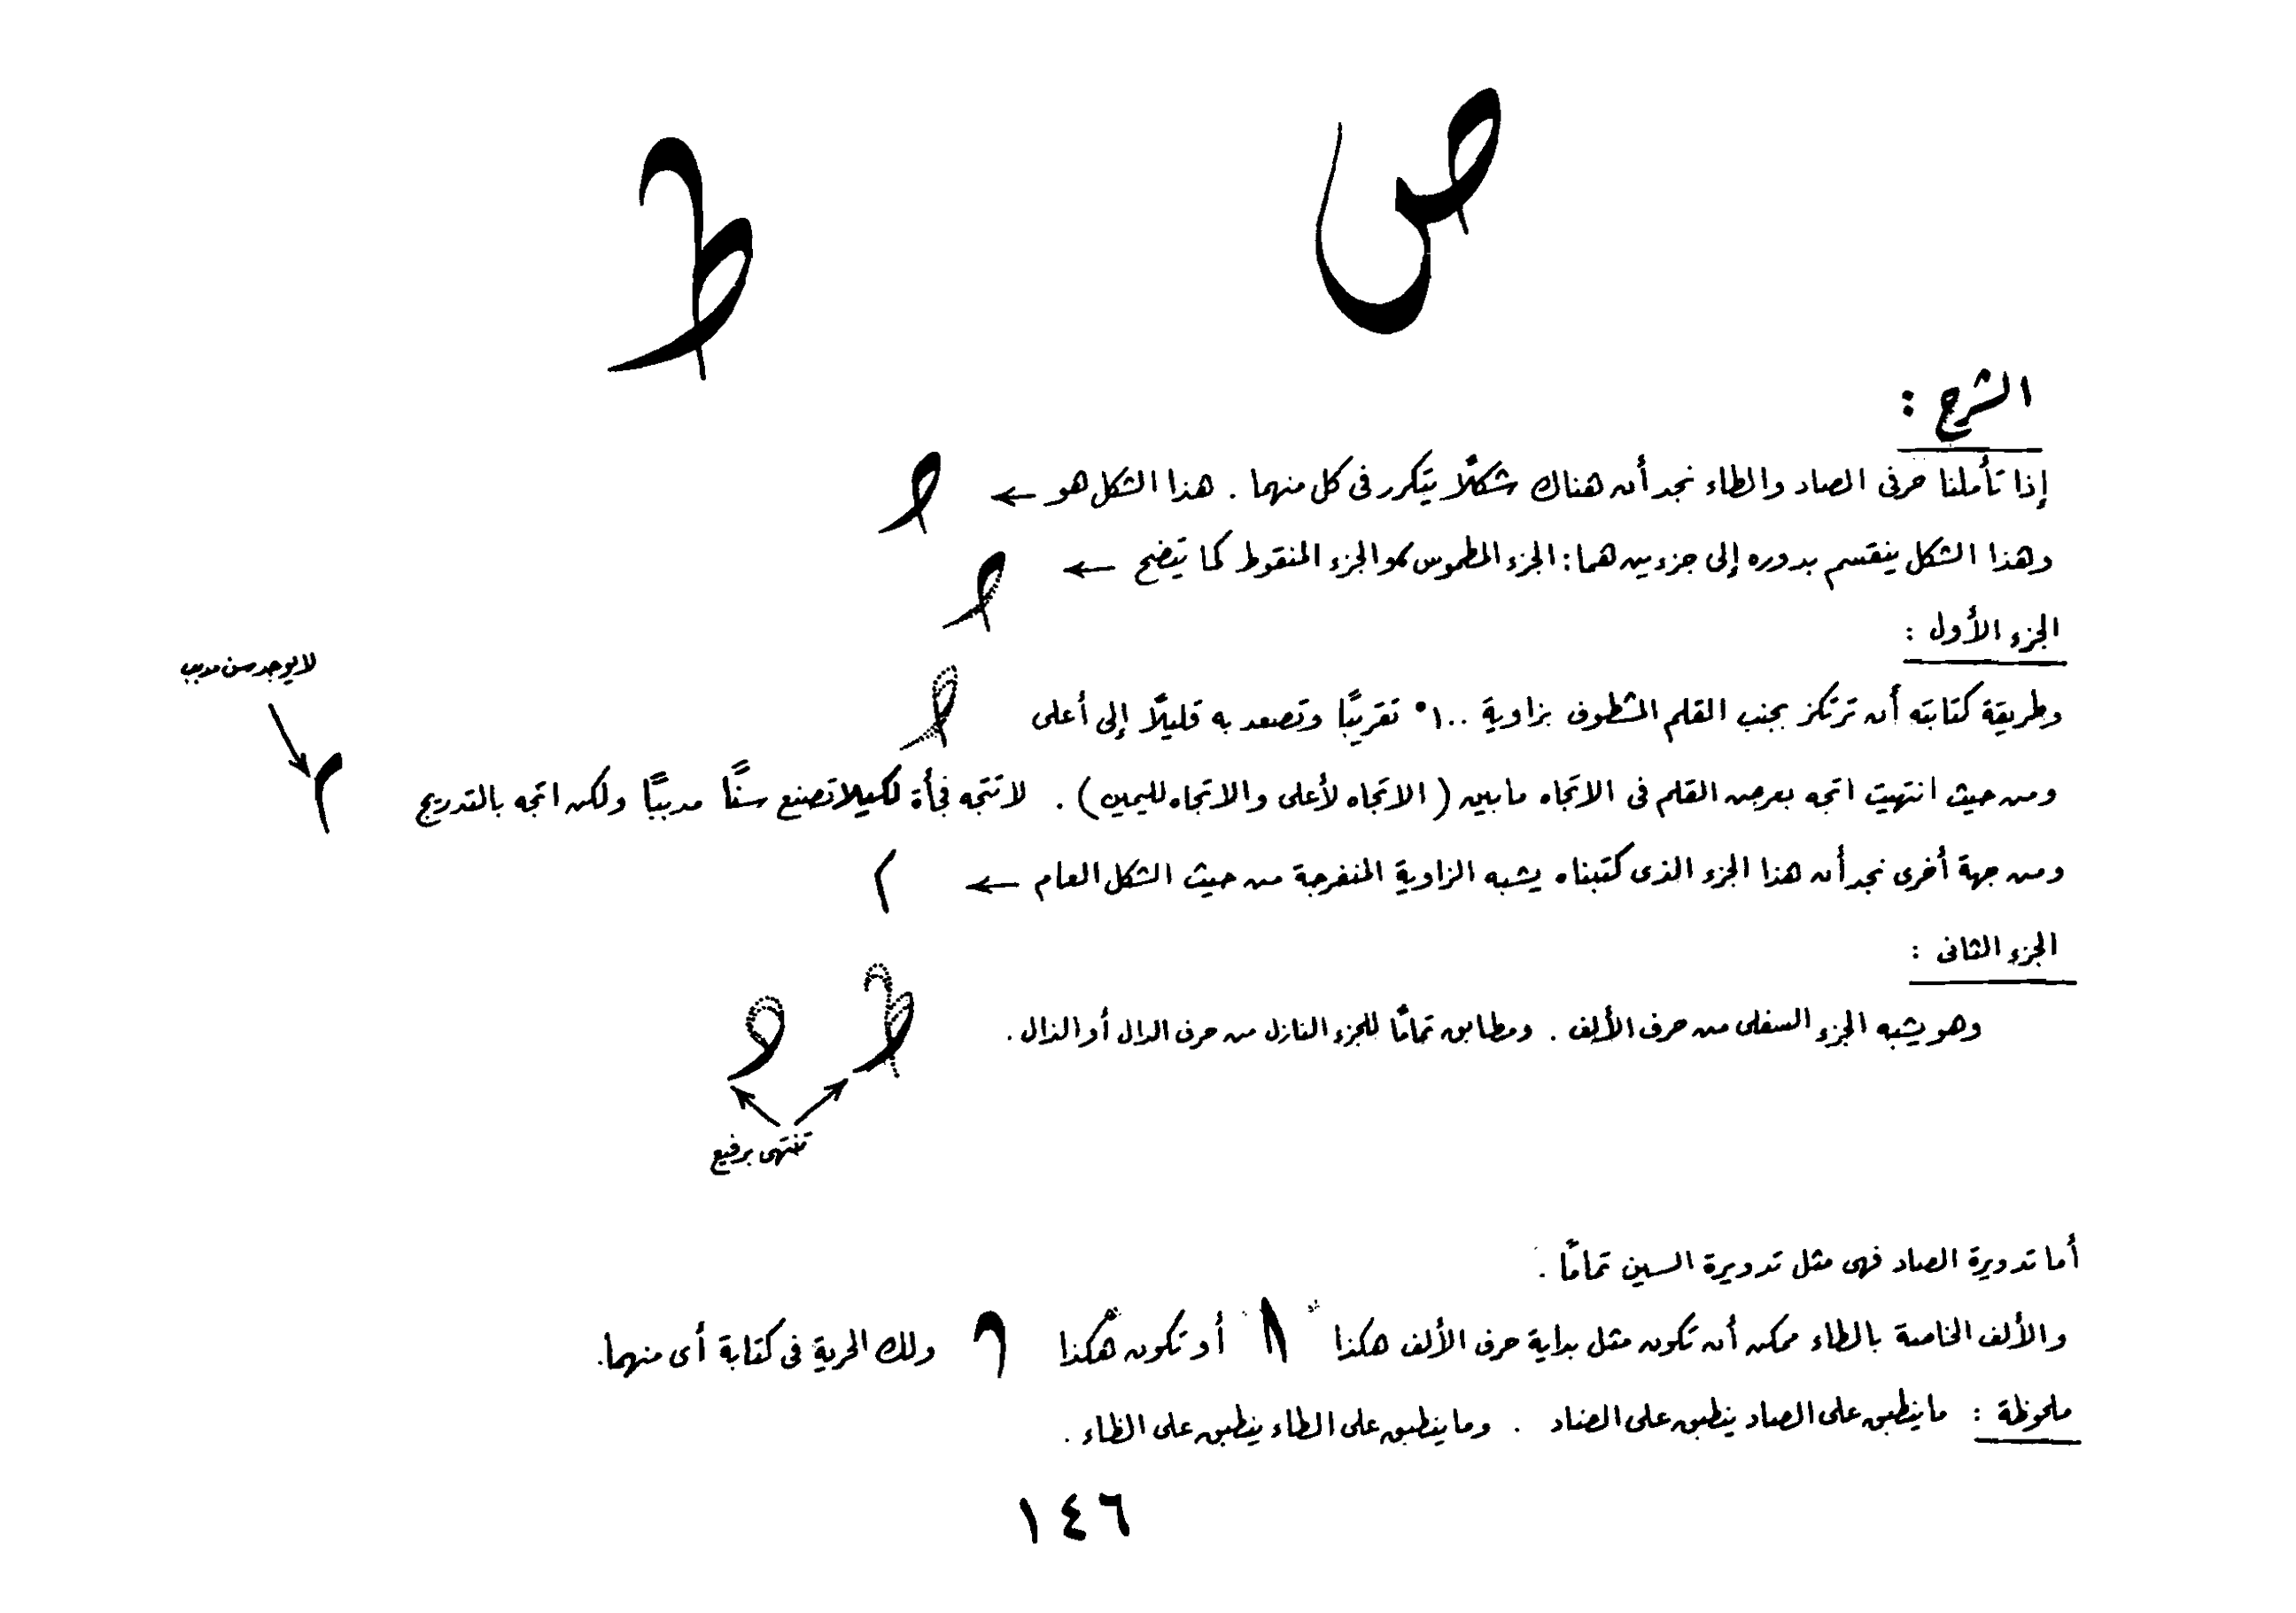 ص ط
الشرح :
إذا تأملنا حرفى الصاد والطاء نجد أن هناك شكلًا يتكرر فى كل منهما . هذا الشكل هو ←
وهذا الشكل ينقسم بدوره إلى جزءين هما : الجزء المطموس، والجزء المنقوط كما يتضح ←
الجزء الأول :
لا يوجد سن مدبب
وطريقة كتابته أن ترتكز بجنب القلم المشطوف بزاوية ١٠٠° تقريبًا وتصعد به قليلًا إلى أعلى
ومن حيث انتهيت اتجه بعرض القلم فى الاتجاه ما بين ( الاتجاه لأعلى والاتجاه لليمين ) . لا تتجه فجأة لكيلا تصنع سنًّا مدببًا ولكن اتجه بالتدريج
ومن جهة أخرى نجد أن هذا الجزء الذى كتبناه يشبه الزاوية المنفرجة من حيث الشكل العام ←
الجزء الثانى :
وهو يشبه الجزء السفلى من حرف الألف . ومطابق تمامًا للجزء النازل من حرف الدال أو الذال .
تنتهى برفيع
أما تدويرة الصاد فهى مثل تدويرة السين تمامًا .
والألف الخاصة بالطاء ممكن أن تكون مثل بداية حرف الألف هكذا أو تكون هكذا ولك الحرية فى كتابة أى منهما .
ملحوظة : ما ينطبق على الصاد ينطبق على الضاد . وما ينطبق على الطاء ينطبق على الظاء .
١٤٦